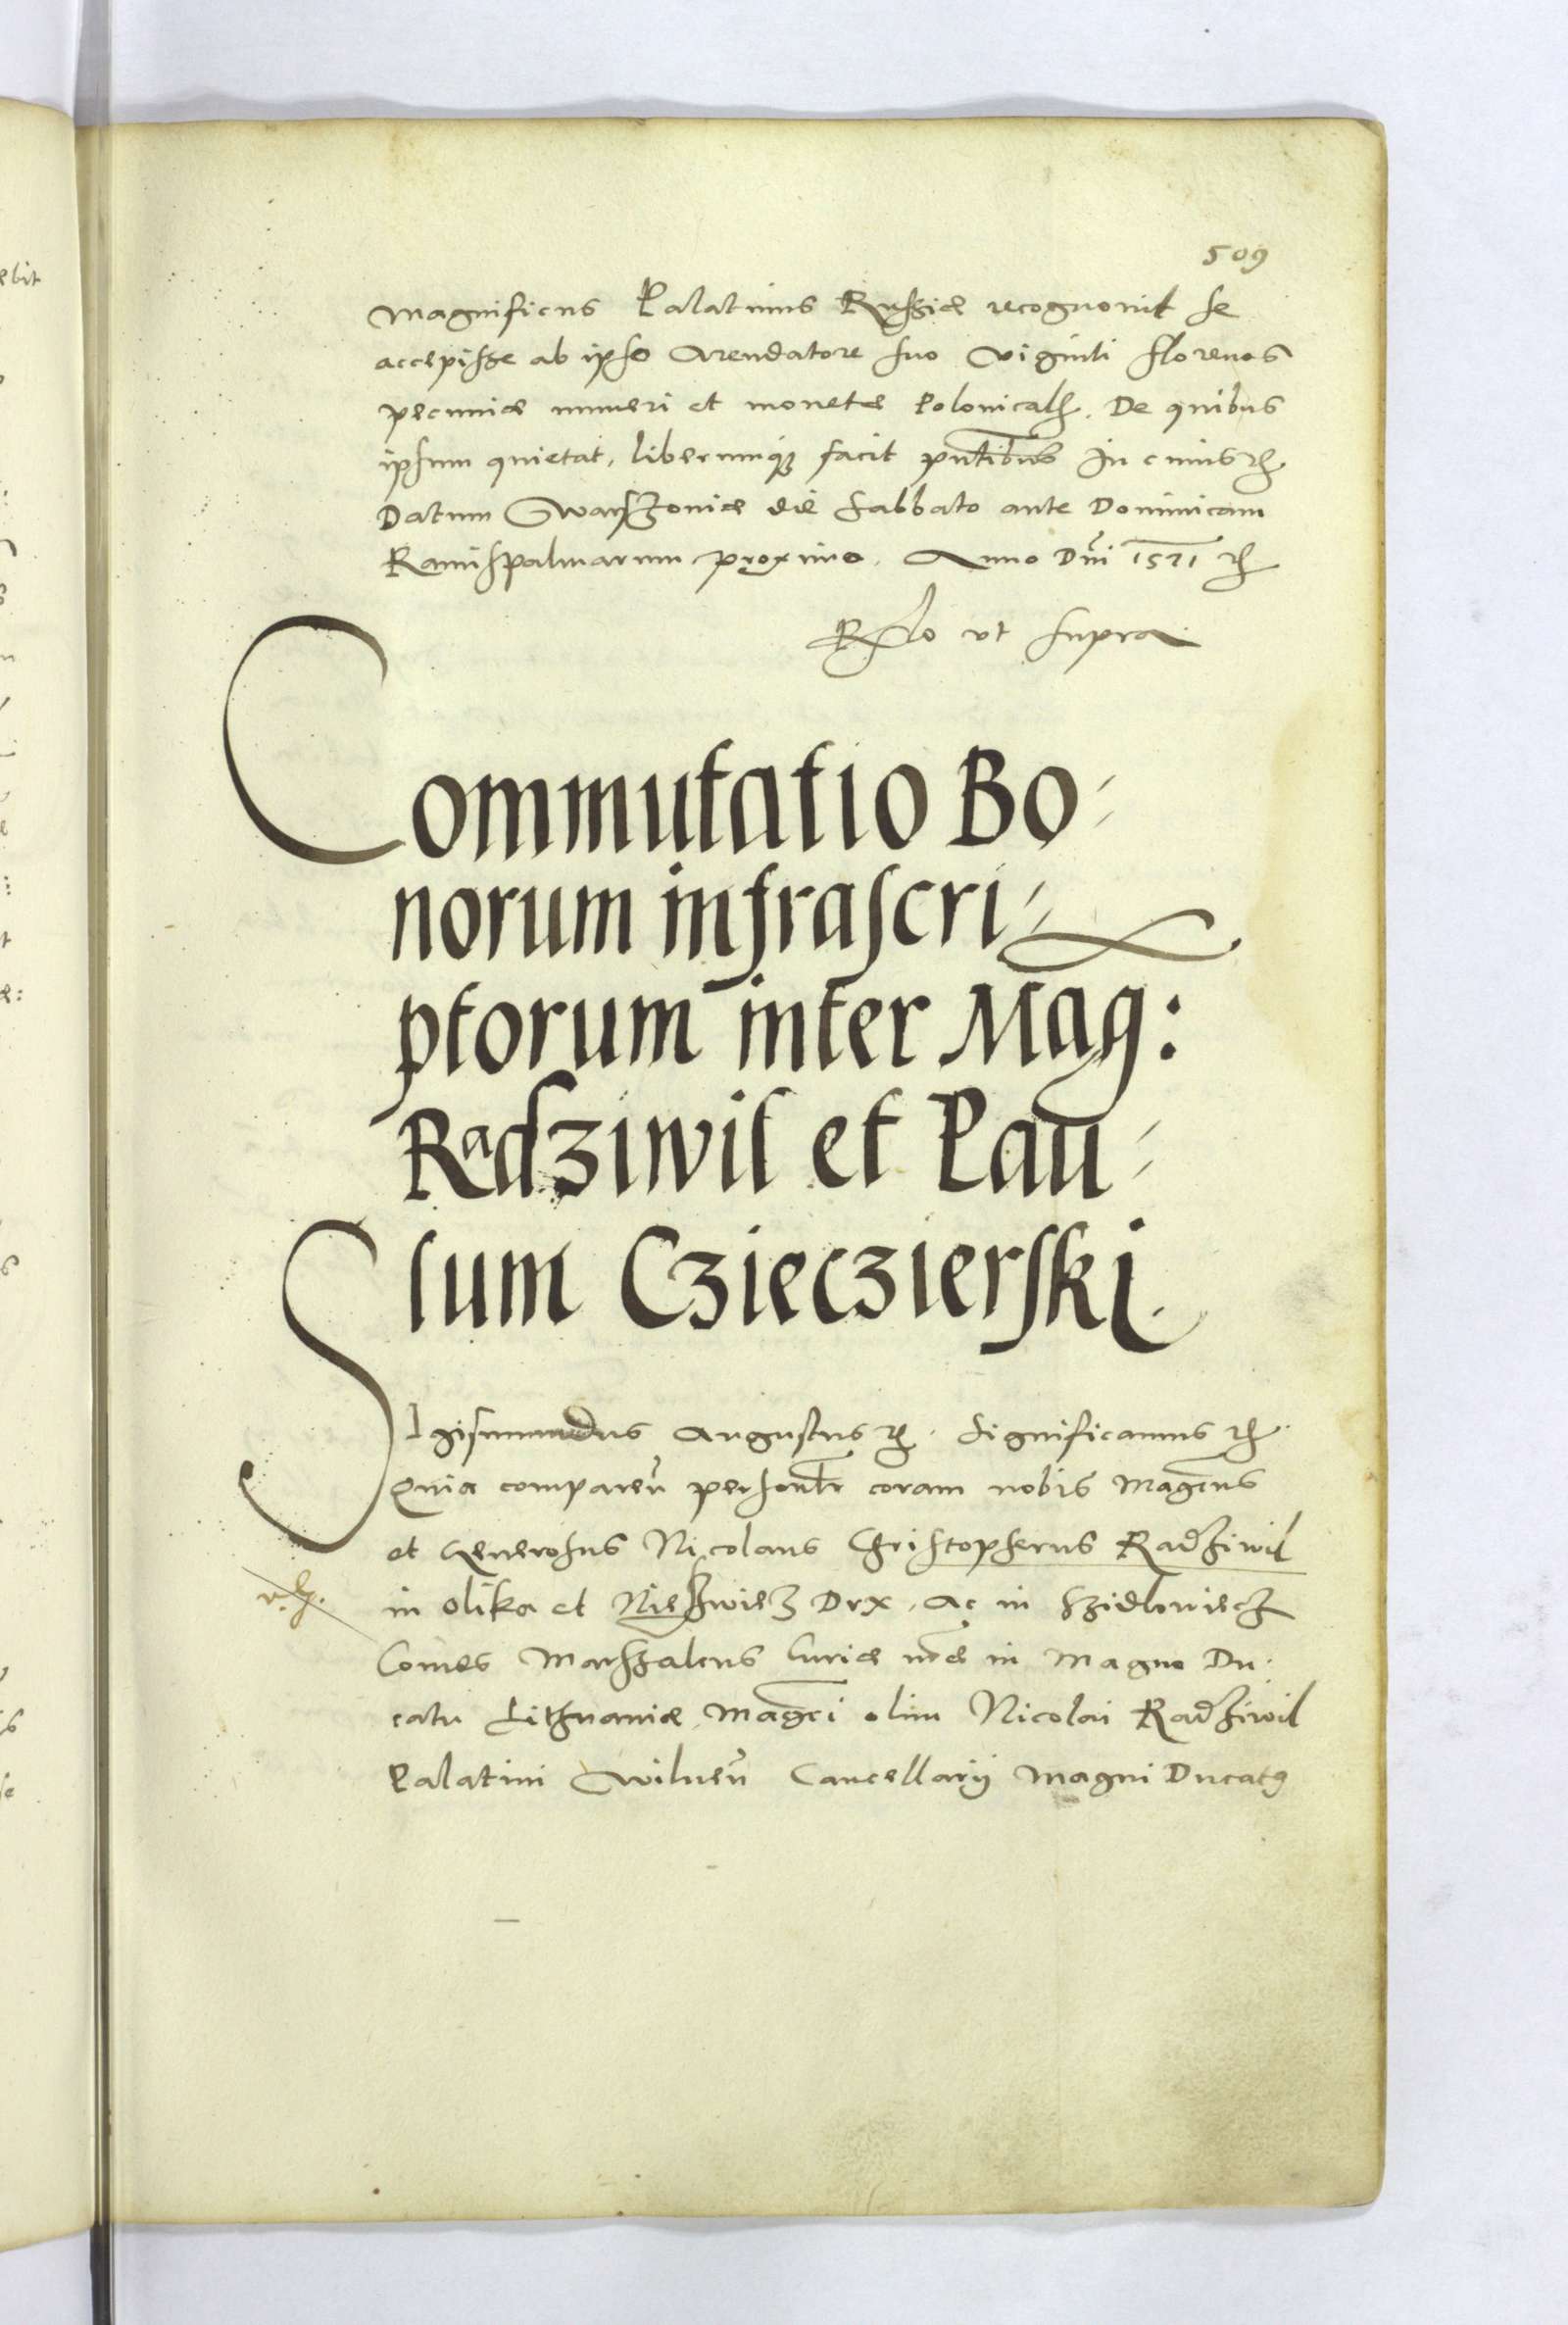 509
Magnificus Palatinus Russiae recognovit se
accepisse ab ipso Arendatore suo viginti florenos
pecuniae numeri et monetae Polonicalis. De quibus
ipsum quietat, liberumque facit pntibus In cuius rei
Datum Warszoviae die Sabbato ante Dominicam
Ramispalmarum proximo. Anno Dni 1571 etc
Rlo ut supra
Commutatio Bo-
norum infrascri-
ptorum inter Mag:
Radziwil et Pau-
lum Czieczierski.
Sigismundus Augustus etc. Significamus etc.
Quia comparen personlr coram nobis Magcus
et Generosus Nicolaus Christopherus Radziwil
in Olika et Nieszwiez Dux, Ac in Szidlowiecz
Comes Marszalcus Curiae nrae in Magno Du-
catu Lithuaniae, Magci olim Nicolai Radziwil
Palatini Wilnen Cancellarij Magni Ducatus